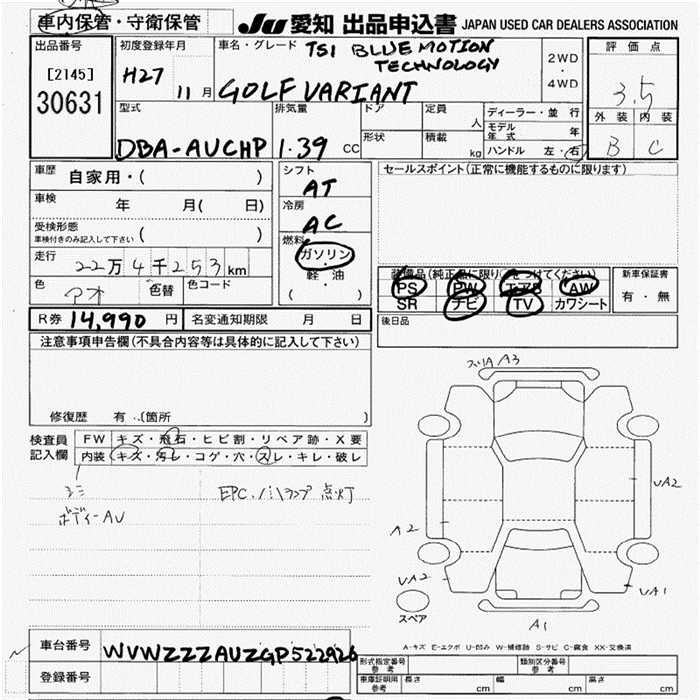 車内保管・守衛保管
JU 愛知 出品申込書 JAPAN USED CAR DEALERS ASSOCIATION
出品番号
[2145]
30631
初度登録年月
H27 11月
車名・グレード TSI BLUE MOTION
TECHNOLOGY
GOLF VARIANT
2WD
・
4WD
評価点
3.5
外装 内装
B C
型式
DBA-AUCHP
排気量
1.39 cc
ドア
形状
定員 人
積載 kg
ディーラー・並行
モデル年式 年
ハンドル 左・右
車歴 自家用・( )
車検 年 月( 日)
受検形態
車検付きのみ記入して下さい ( )
走行 22万4千253km
色 アオ 色替 色コード
シフト
AT
冷房
AC
燃料
ガソリン
・
軽・油
( )
セールスポイント(正常に機能するものに限ります)
装備品(純正品に限り○をつけてください)
PS PW エアB AW
SR ナビ TV カワシート
新車保証書
有・無
R券 14,990円 名変通知期限 月 日
後日品
注意事項申告欄(不具合内容等は具体的に記入して下さい)
修復歴 有・(箇所 )
検査員
記入欄
FW キズ・飛石・ヒビ割・リペア跡・X要
内装 キズ・汚レ・コゲ・穴・スレ・キレ・破レ
ボディーAU
点灯
A3
UA2
A2
UA2
UA1
A1
スペア
A-キズ E-エクボ U-凹み W-補修跡 S-サビ C-腐食 XX-交換済
車台番号 WVWZZZAUZGP522926
登録番号
形式指定番号
参考
類別区分番号
参考
車庫証明用
参考
長さ cm 幅 cm 高さ cm